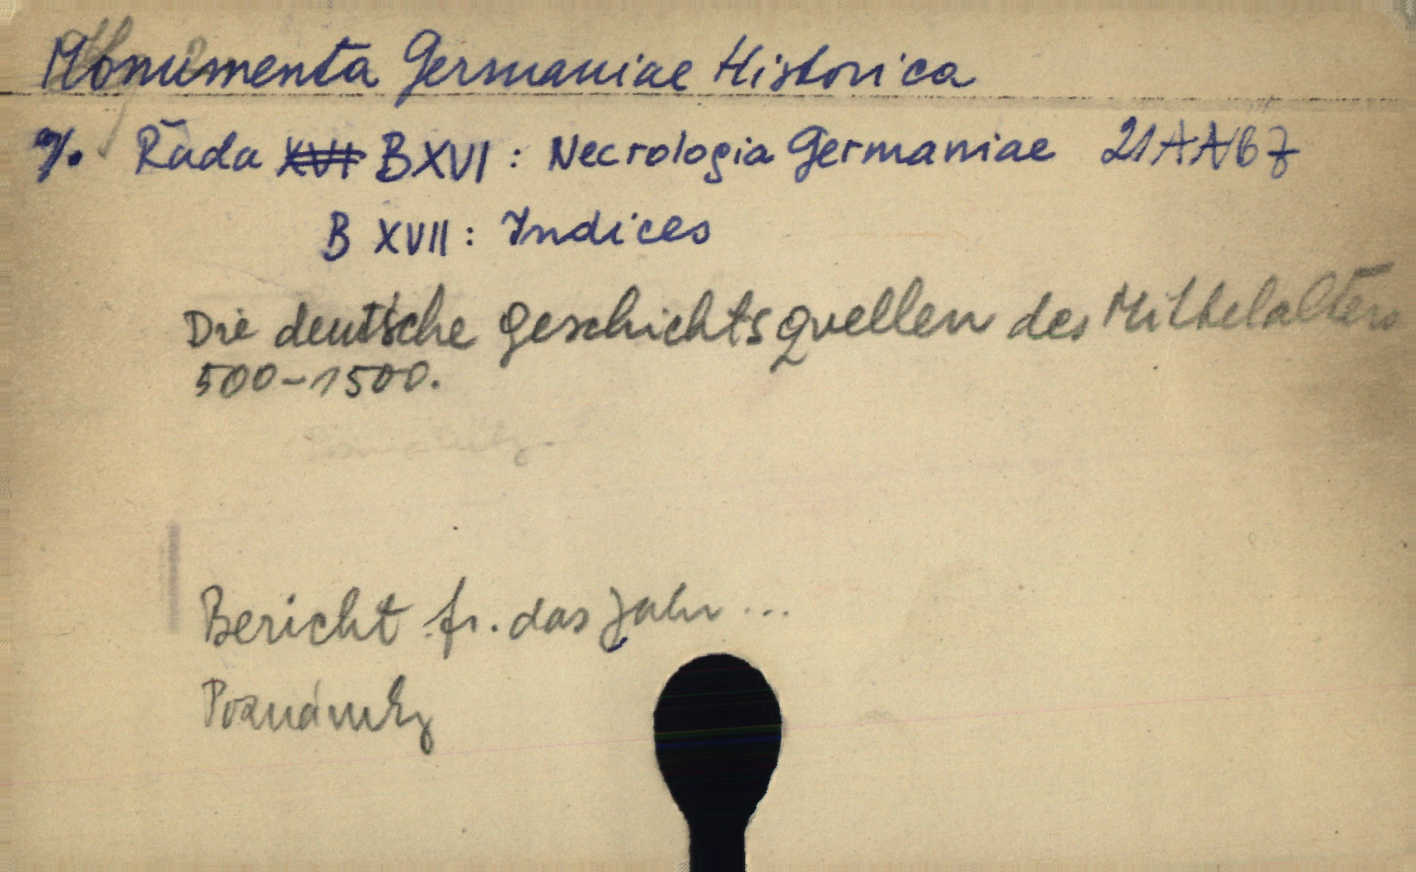 Monumenta Germaniae Historica
%. Řada ~~XVI~~ B XVI : Necrologia Germaniae 21AA67
B XVII : Indices
Die deutsche Geschichtsquellen des Mittelalters
500-1500.
Bericht fr. das Jahr ...
Poznámky